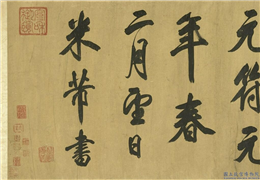 元符元
年春
二月望日
米芾書